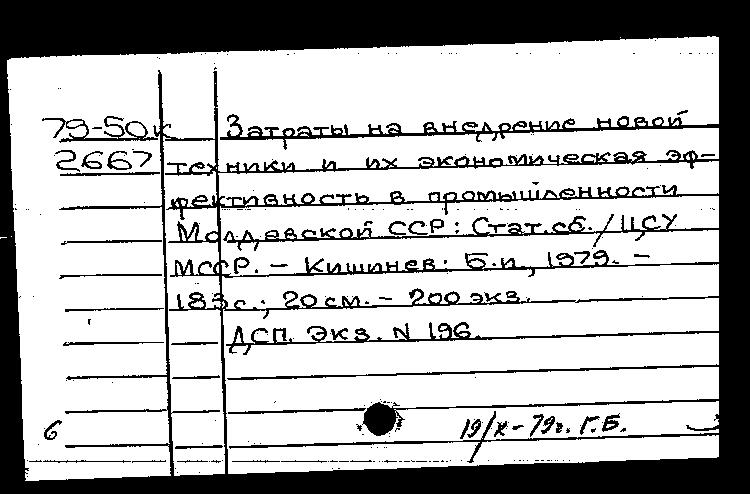 79-50к Затраты на внедрение новой
2667 техники и их экономическая эф-
фективность в промышленности
Молдавской ССР: Стат.сб./ЦСУ
МССР. – Кишинев: Б.и., 1979. –
183с.; 20см. – 200 экз.
ДСП. Экз. N 196.
6 19/X-79г. Г.Б.